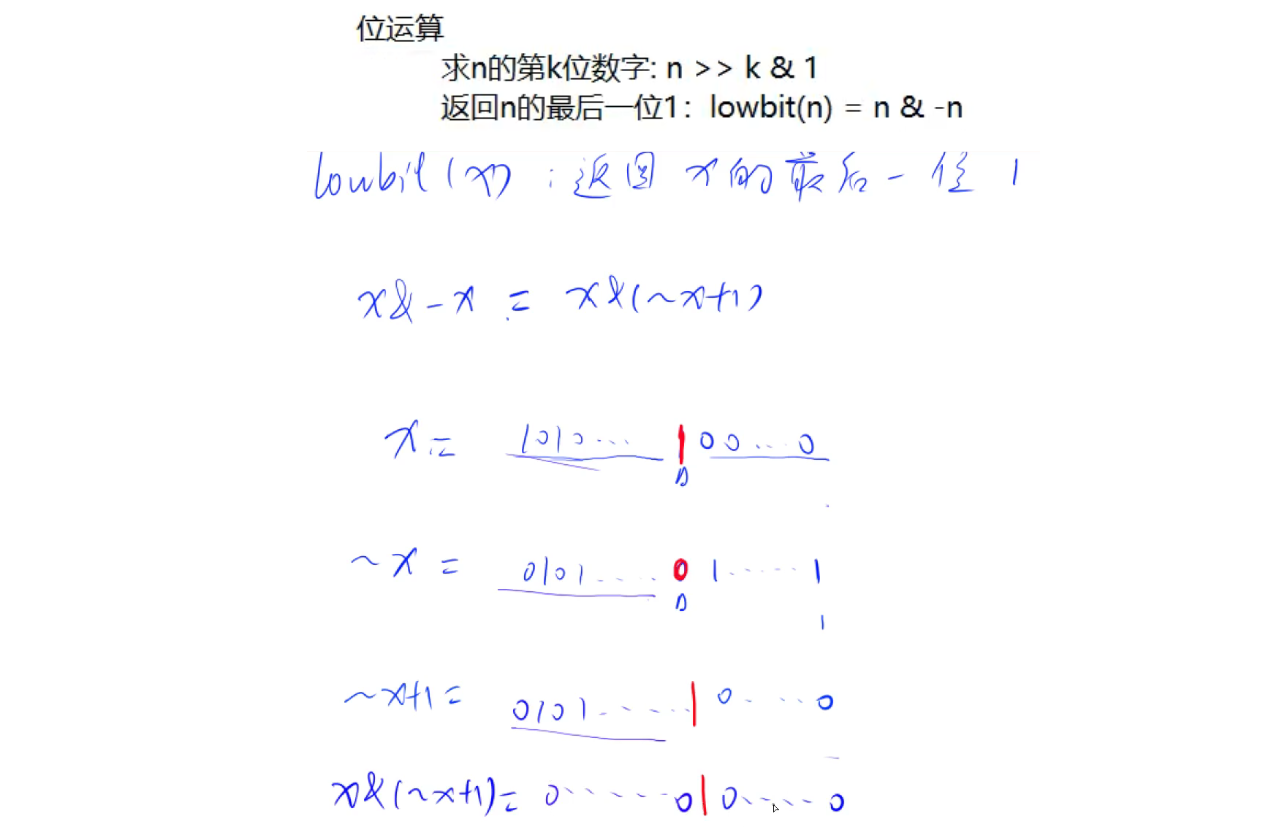 位运算
求n的第k位数字: n >> k & 1
返回n的最后一位1：lowbit(n) = n & -n
lowbit(x) : 返回 x的最后一位 1
x&-x = x&(~x+1)
x = 1010... 1 00...0
~x = 0101..... 0 1......1
1
~x+1 = 0101...... 1 0.....0
x&(~x+1)= 0......0 1 0......0